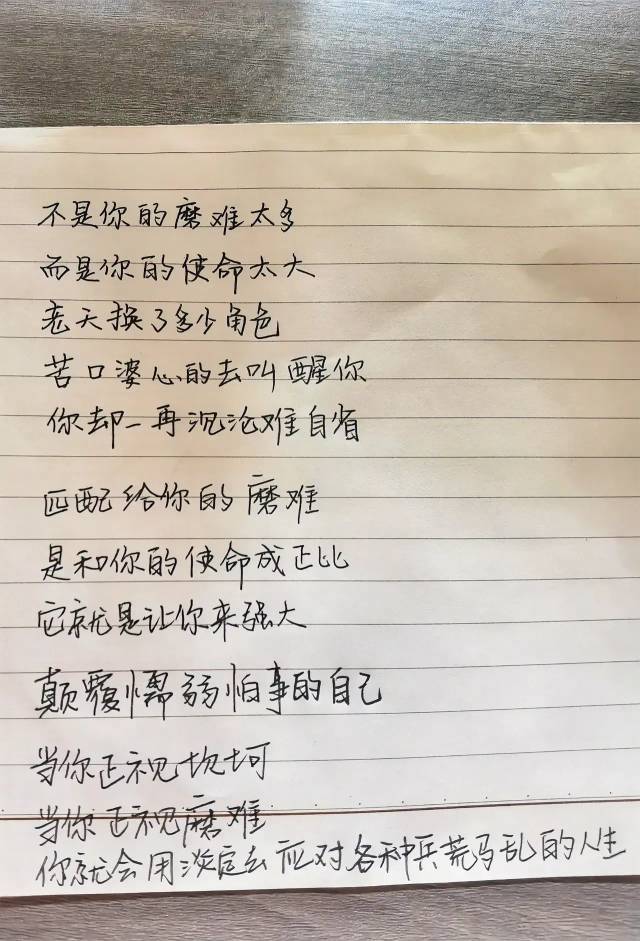 不是你的磨难太多
而是你的使命太大
老天换了多少角色
苦口婆心的去叫醒你
你却一再沉沦难自省
匹配给你的磨难
是和你的使命成正比
它就是让你来强大
颠覆懦弱怕事的自己
当你正视坎坷
当你正视磨难
你就会用淡定去应对各种兵荒马乱的人生